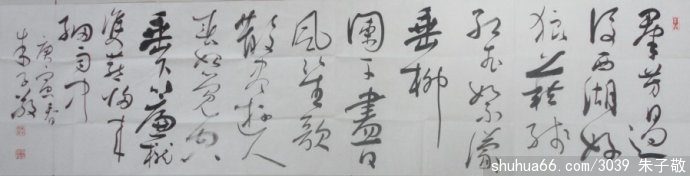 群芳过
后西湖好
狼籍残
红飞絮濛
垂柳
阑干尽日
风笙歌
散尽游人
去始觉春
空
垂下帘栊
双燕归来
细雨中
庚寅春
朱子敬
shuhua66.com/3039 朱子敬